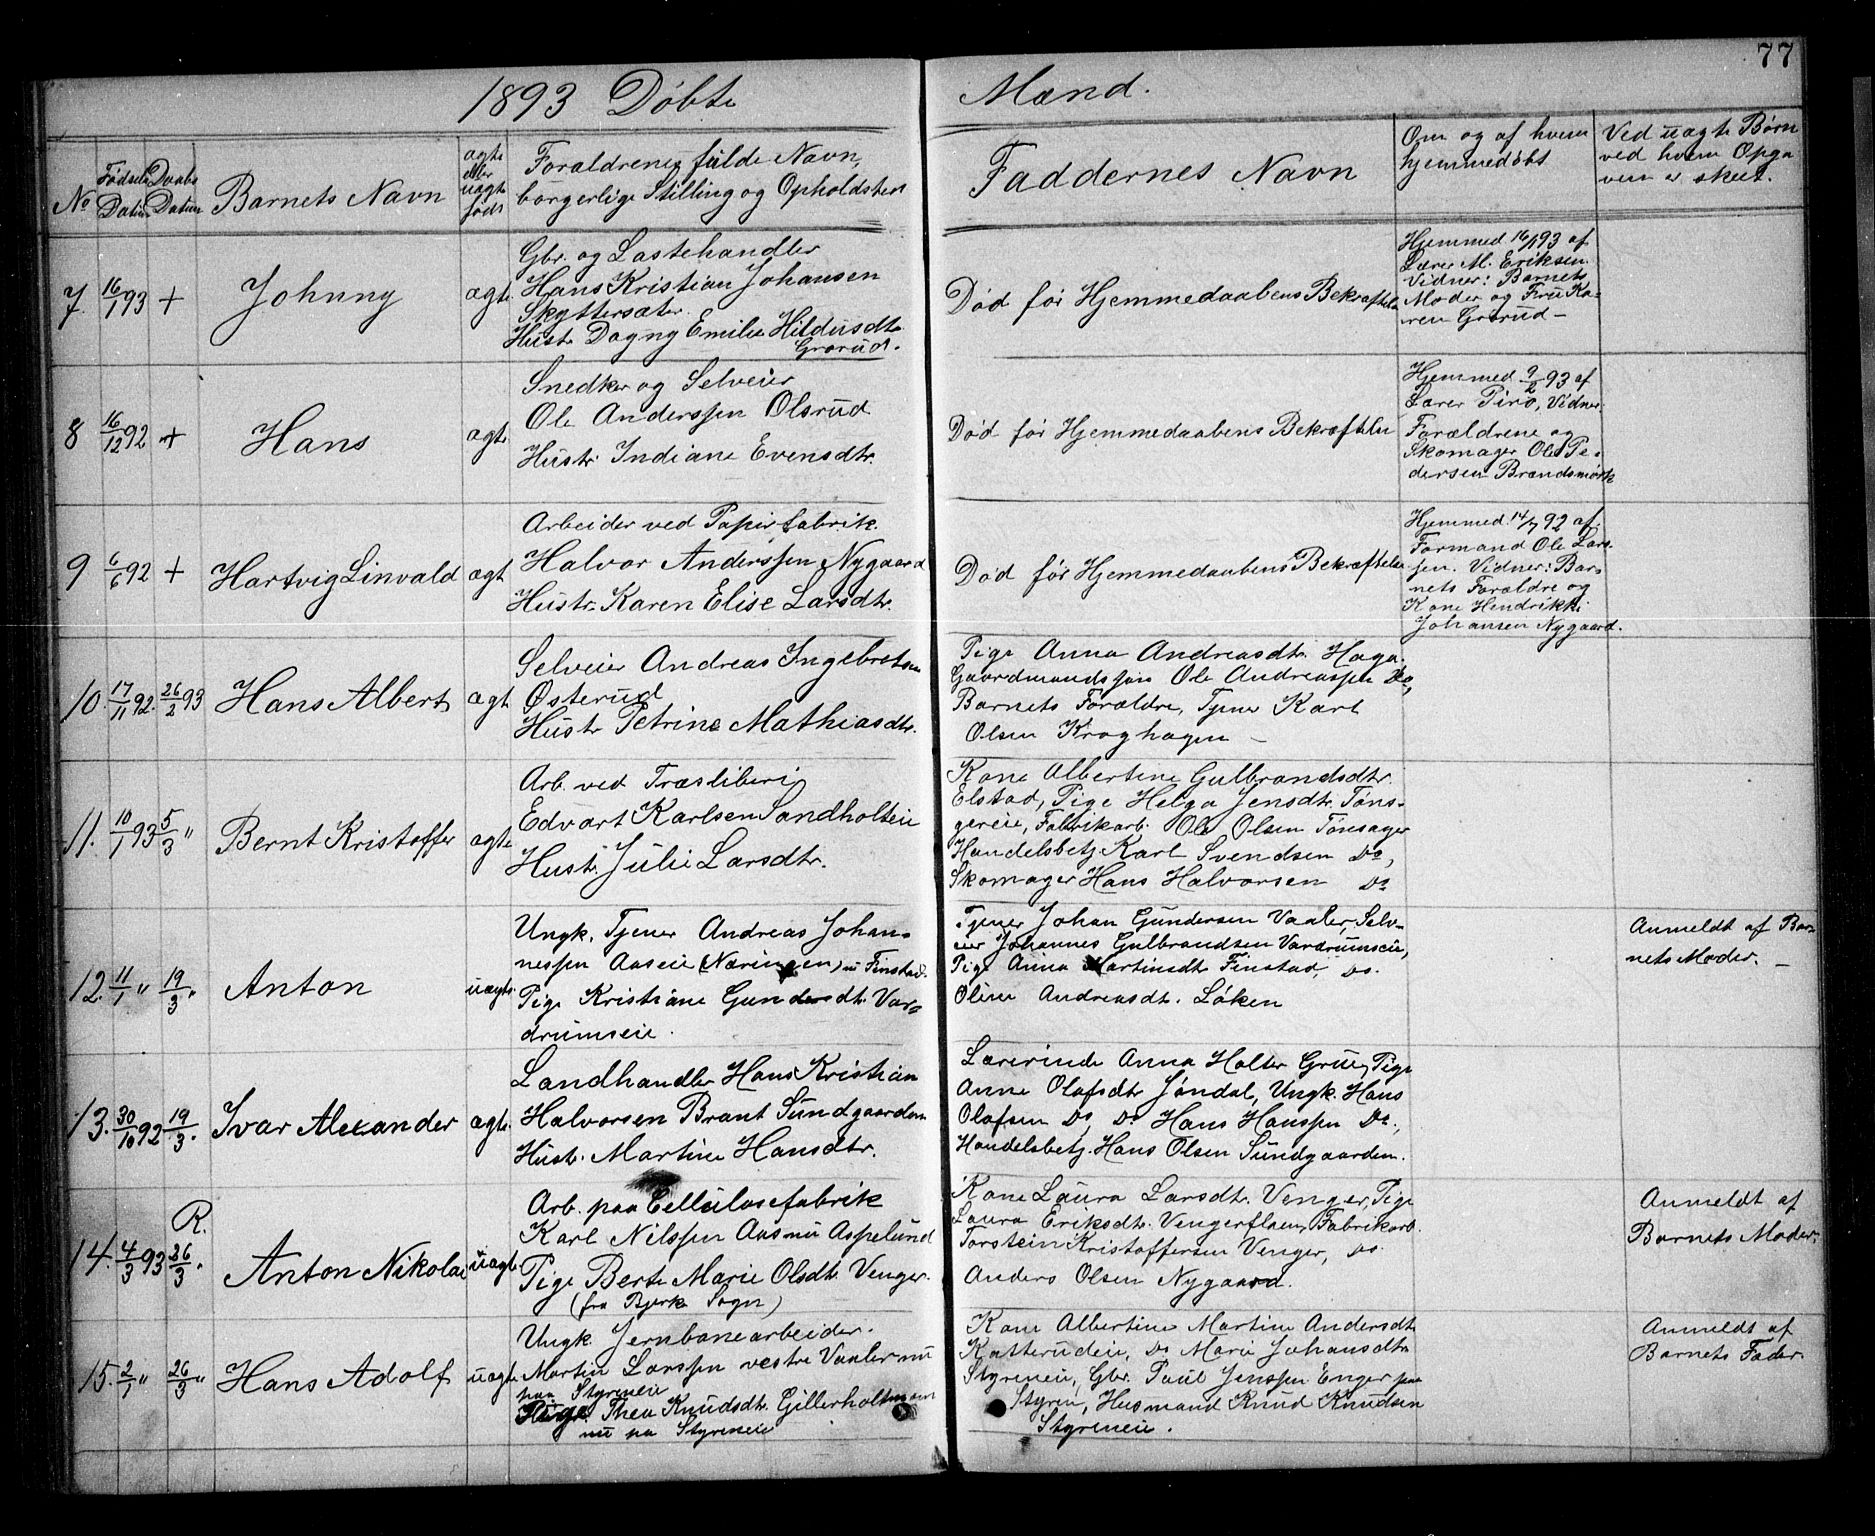 77
1893 Døbte Mænd.
No
Fødsels Datum
Daabs Datum
Barnets Navn
ægte eller uægte født
Forældrenes fulde Navn,
borgerlige Stilling og Opholdsted
Faddernes Navn
Om og af hvem
hjemmedøbt
Ved uægte Børn
ved hvem Opga
ven er skeet.
7. 16/1 93 + Johnny ægte
Gbr. og Lastehandler
Hans Kristian Johansen
Skyttersæter.
Hustr. Dagny Emilie Hildusdtr
Grorud.
Død før Hjemmedaabens Bekræftelse
Hjemmed. 16/1 93 af
Lærer M. Eriksen.
Vidner: Barnets
Moder og Fru Ka-
ren Grorud -
8 16/12 92 + Hans ægte
Snedker og Selveier
Ole Anderssen Olsrud
Hustr. Indiane Evensdtr.
Død før Hjemmedaabens Bekræftelse
Hjemmed 9/2 93 af
Lærer Piro, Vidner
Forældrene og
Skomager Ole Pe-
dersen Brændsmørk
9 6/6 92 + Hartvig Linvald ægte
Arbeider ved Papirfabrik.
Halvor Anderssen Nygaard
Hustr. Karen Elise Larsdtr.
Død før Hjemmedaabens Bekræftelse
Hjemmed. 14/7 92 af
Formand Ole Lars-
sen. Vidner: Bar-
nets Forældre og
Kone Hendrikke
Johansen Nygaard.
10. 17/11 92. 26/2 93 Hans Albert ægte
Selveier Andreas Ingebretsen
Østerud
Hustr Petrine Mathiasdtr.
Pige Anna Andreasdtr. Haga.
Gaardmandssøn Ole Andreassen Do,
Barnets Forældre, Tjener Karl
Olsen Kroghagen -
11. 10/1 93 5/3 " Bernt Kristoffer ægte
Arb. ved Træsliberi
Edvart Karlsen Sandholteie
Hustr. Julie Larsdtr.
Kone Albertine Gulbrandsdtr.
Elstad, Pige Helga Jensdtr. Tøns-
gereie, Fabrikarb. Ole Olsen Tønsager
Handelsbetj. Karl Svendsen Do,
Skomager Hans Halvorsen Do
12. 11/1 " 19/3 " Anton uægte
Ungk. Tjener Andreas Johan-
nessen Aaseie (Næringen) nu Finstad.
Pige Kristiane Gundersdtr. Var-
drumseie.
Tjener Johan Gundersen Vaaler, Selv-
eier Johannes Gulbrandsen Vardrumseie,
Pige Anna Martinsdtr Finstad Do.
Oline Andreasdtr. Løken
Anmeldt af Bar-
nets Moder. -
13. 30/10 92 19/3. Ivar Alexander ægte.
Landhandler Hans Kristian
Halvorsen Brant Sundgaarden
Hustr. Martine Hansdtr.
Lærerinde Anna Holter Grue, Pige
Anne Olafsdtr Jøndal, Ungk. Hans
Olafsen Do, Do Hans Hanssen Do.,
Handelsbetj. Hans Olsen Sundgaarden.
R.
14. 4/3 93 26/3. Anton Nikolai uægte
Arb. paa Cellulosefabrik
Karl Nilssen Aasnu Aspelund
Pige Berte Marie Olsdtr. Venger.
(fra Bjerke Sogn)
Kone Laura Larsdtr. Venger, Pige
Laura Eriksdtr. Vengerflaen, Fabrikarb.
Torstein Kristoffersen Venger, Do.
Anders Olsen Nygaard.
Anmeldt af
Barnets Moder.
15. 2/1 " 26/3 " Hans Adolf uægte
Ungk. Jernbanearbeider.
Martin Larssen vestre Vaaler nu
paa Styreneie
Pige Thea Knudsdtr. Gillerholtmoen
nu pa Styreneie
Kone Albertine Martine Andersdtr
Katterudeie, Do Marie Johansdtr
Styreneie, Gbr. Paul Jenssen Enger paa
Styren, Husmand Knud Knudsen
Styreneie.
Anmeldt af
Barnets Fader.